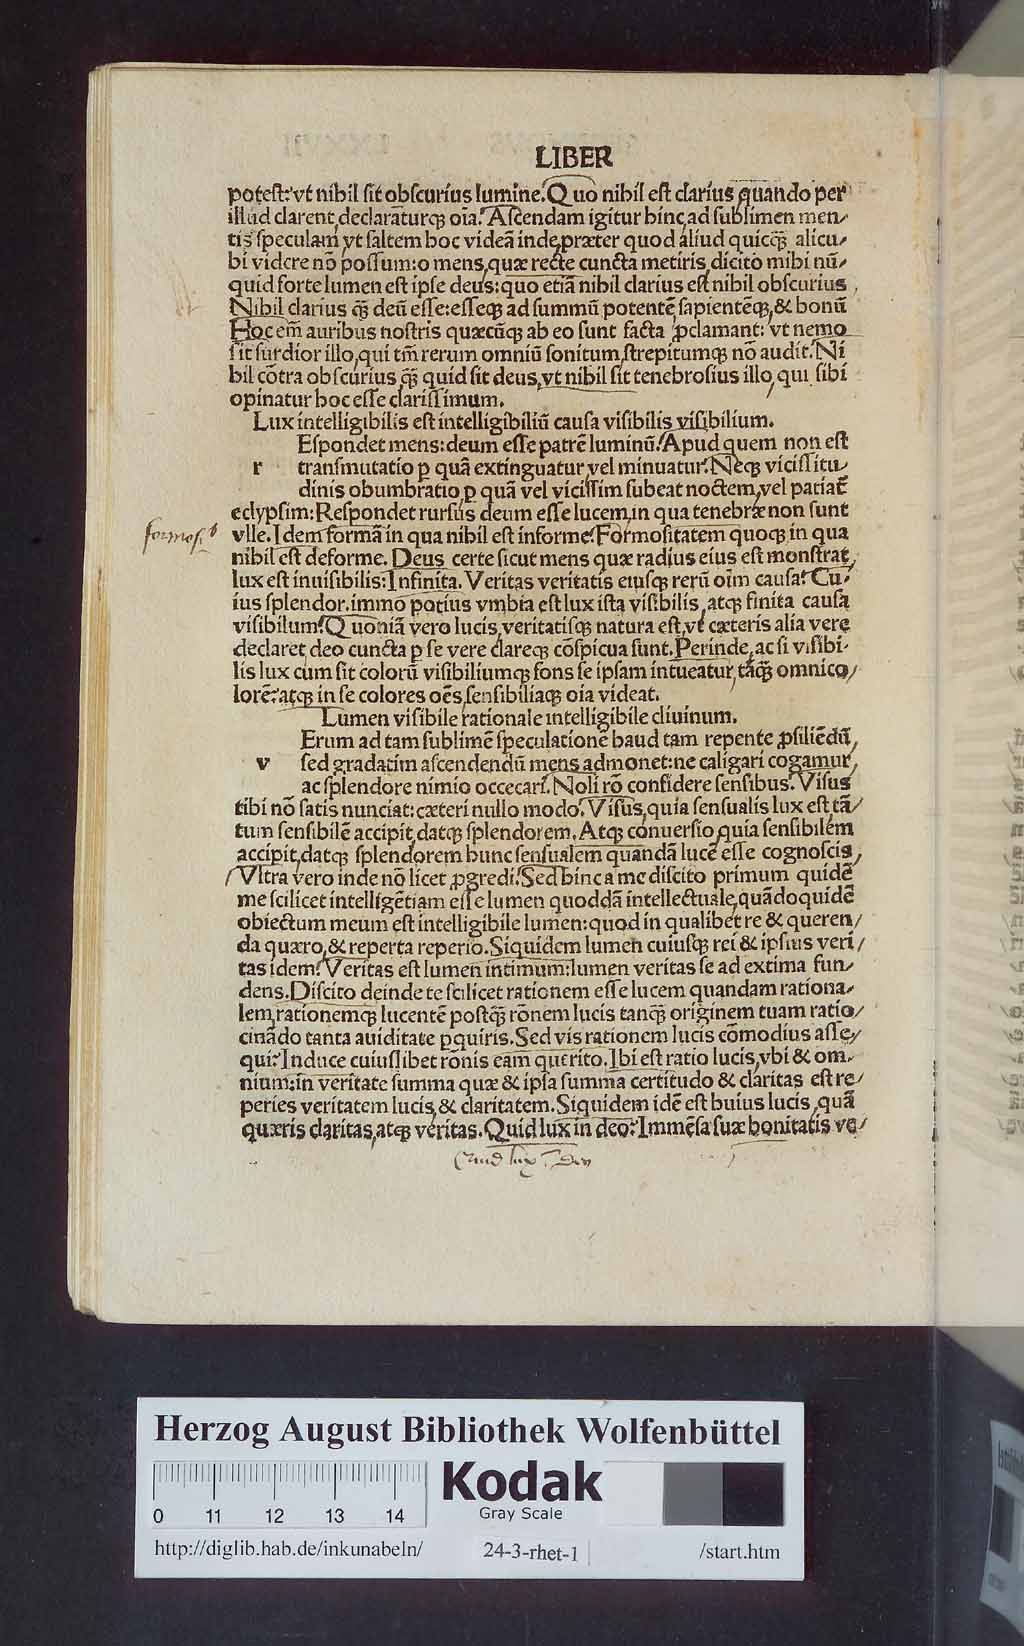 LIBER
potest: vt nihil sit obscurius lumine. Quo nihil est clarius quando per
illud clarent, declaranturq; oĩa. Ascendam igitur hinc ad sublimen men/
tis speculam, vt saltem hoc videã inde, præter quod aliud quicq̃ alicu/
bi videre nõ possum: o mens, quæ recte cuncta metiris, dicito mihi nũ/
quid forte lumen est ipse deus: quo etiã nihil clarius est nihil obscurius
Nihil clarius q̃ deũ esse: esseq; ad summũ potentẽ sapientẽq;, & bonũ
Hoc em̃ auribus nostris quæcũq; ab eo sunt facta ꝓclamant: vt nemo
sit surdior illo, qui tm̃ rerum omniũ sonitum, strepitumq; nõ audit. Ni
hil cõtra obscurius q̃ quid sit deus, vt nihil sit tenebrosius illo, qui sibi
opinatur hoc esse clarissimum.
Lux intelligibilis est intelligibiliũ causa visibilis visibilium.
Espondet mens: deum esse patrẽ luminũ. Apud quem non est
r transmutatio ꝑ quã extinguatur vel minuatur. Neq; vicissitu/
dinis obumbratio, ꝑ quã vel vicissim subeat noctem, vel patiat̃
eclypsim: Respondet rursus deum esse lucem, in qua tenebræ non sunt
vlle. Idem formã in qua nihil est informe. Formositatem quoq; in qua
formos.
nihil est deforme. Deus certe sicut mens quæ radius eius est monstrat,
lux est inuisibilis: Infinita. Veritas veritatis eiusq; rerũ oĩm causa. Cu/
ius splendor. immo potius vmbra est lux ista visibilis, atq; finita causa
visibilum. Quoniã vero lucis, veritatisq; natura est, vt cæteris alia vere
declaret, deo cuncta ꝑ se vere clareq; cõspicua sunt. Perinde, ac si visibi-
lis lux cum sit colorũ visibiliumq; fons se ipsam intueatur, tãq̃ omnico/
lorẽ: atq; in se colores oẽs, sensibiliaq; oĩa videat.
Lumen visibile rationale intelligibile diuinum.
Erum ad tam sublimẽ speculationẽ haud tam repente ꝓsiliẽdũ,
v sed gradatim ascendendũ mens admonet: ne caligari cogamur,
ac splendore nimio occecari. Noli rõ confidere sensibus. Visus
tibi nõ satis nunciat: cæteri nullo modo. Visus, quia sensualis lux est, tã/
tum sensibilẽ accipit, datq; splendorem. Atq; conuersio, quia sensibilem
accipit, datq; splendorem hunc sensualem quandã lucẽ esse cognoscis,
Vltra vero inde nõ licet ꝓgredi. Sed hinc a me discito primum quidẽ
me scilicet intelligẽtiam esse lumen quoddã intellectuale, quãdoquidẽ
obiectum meum est intelligibile lumen: quod in qualibet re & queren/
da quæro, & reperta reperio. Siquidem lumen cuiusq; rei & ipsius veri/
tas idem. Veritas est lumen intimum: lumen veritas se ad extima fun/
dens. Discito deinde te scilicet rationem esse lucem quandam rationa/
lem, rationemq; lucentẽ postq̃ rõnem lucis tanq̃ originem tuam ratio/
cinãdo tanta auiditate ꝑquiris. Sed vis rationem lucis cõmodius asse/
qui: Induce cuiuslibet rõnis eam querito. Ibi est ratio lucis, vbi & om-
nium: in veritate summa quæ & ipsa summa certitudo & claritas est re/
peries veritatem lucis, & claritatem. Siquidem idẽ est huius lucis, quã
quæris claritas, atq; veritas. Quid lux in deo: Immẽsa suæ bonitatis ve/
Quid lux ĩ Deo
Herzog August Bibliothek Wolfenbüttel
Kodak
Gray Scale
0 11 12 13 14
http://diglib.hab.de/inkunabeln/ 24-3-rhet-1 /start.htm